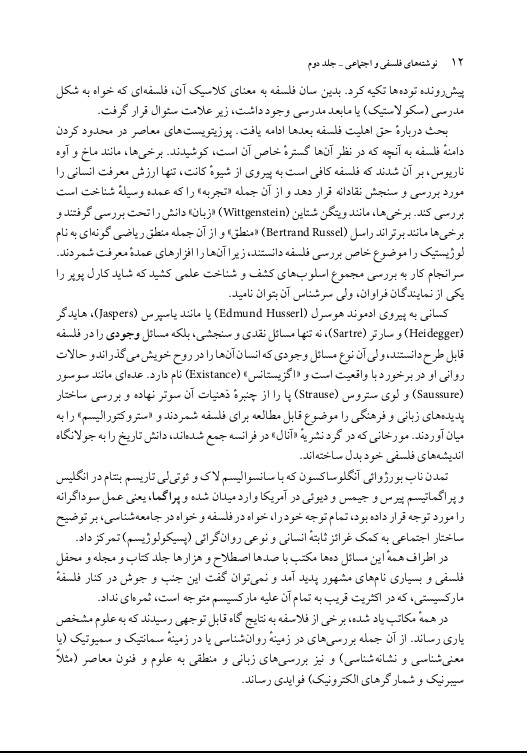 ۱۲ نوشته‌های فلسفی و اجتماعی ـ جلد دوم
پیش‌رونده توده‌ها تکیه کرد. بدین سان فلسفه به معنای کلاسیک آن، فلسفه‌ای که خواه به شکل
مدرسی (سکولاستیک) یا مابعد مدرسی وجود داشت، زیر علامت سئوال قرار گرفت.
بحث دربارهٔ حق اهلیت فلسفه بعدها ادامه یافت. پوزیتویست‌های معاصر در محدود کردن
دامنهٔ فلسفه به آنچه که در نظر آن‌ها گسترهٔ خاص آن است، کوشیدند. برخی‌ها، مانند ماخ و آوه
ناریوس، بر آن شدند که فلسفه کافی است به پیروی از شیوهٔ کانت، تنها ارزش معرفت انسانی را
مورد بررسی و سنجش نقادانه قرار دهد و از آن جمله «تجربه» را که عمده وسیلهٔ شناخت است
بررسی کند. برخی‌ها، مانند ویتگن شتاین (Wittgenstein) «زبان» دانش را تحت بررسی گرفتند و
برخی‌ها مانند برتراند راسل (Bertrand Russel) «منطق» و از آن جمله منطق ریاضی گونه‌ای به نام
لوژیستیک را موضوع خاص بررسی فلسفه دانستند، زیرا آن‌ها را افزارهای عمدهٔ معرفت شمردند.
سرانجام کار به بررسی مجموع اسلوب‌های کشف و شناخت علمی کشید که شاید کارل پوپر را
یکی از نمایندگان فراوان، ولی سرشناس آن بتوان نامید.
کسانی به پیروی ادموند هوسرل (Edmund Husserl) یا مانند یاسپرس (Jaspers)، هایدگر
(Heidegger) و سارتر (Sartre)، نه تنها مسائل نقدی و سنجشی، بلکه مسائل وجودی را در فلسفه
قابل طرح دانستند، ولی آن نوع مسائل وجودی که انسان آن‌ها را در روح خویش می‌گذراند و حالات
روانی او در برخورد با واقعیت است و «اگزیستانس» (Existance) نام دارد. عده‌ای مانند سوسور
(Saussure) و لوی ستروس (Strause) پا را از چنبرهٔ ذهنیات آن سوتر نهاده و بررسی ساختار
پدیده‌های زبانی و فرهنگی را موضوع قابل مطالعه برای فلسفه شمردند و «ستروکتورالیسم» را به
میان آوردند. مورخانی که در گرد نشریهٔ «آنال» در فرانسه جمع شده‌اند، دانش تاریخ را به جولانگاه
اندیشه‌های فلسفی خود بدل ساخته‌اند.
تمدن ناب بورژوائی آنگلوساکسون که با سانسوالیسم لاک و ئوتی‌لی تاریسم بنتام در انگلیس
و پراگماتیسم پیرس و جیمس و دیوئی در آمریکا وارد میدان شده و پراگما، یعنی عمل سوداگرانه
را مورد توجه قرار داده بود، تمام توجه خود را، خواه در فلسفه و خواه در جامعه‌شناسی، بر توضیح
ساختار اجتماعی به کمک غرائز ثابتهٔ انسانی و نوعی روان‌گرائی (پسیکولوژیسم) تمرکز داد.
در اطراف همهٔ این مسائل ده‌ها مکتب با صدها اصطلاح و هزارها جلد کتاب و مجله و محفل
فلسفی و بسیاری نام‌های مشهور پدید آمد و نمی‌توان گفت این جنب و جوش در کنار فلسفهٔ
مارکسیستی، که در اکثریت قریب به تمام آن علیه مارکسیسم متوجه است، ثمره‌ای نداد.
در همهٔ مکاتب یاد شده، برخی از فلاسفه به نتایج گاه قابل توجهی رسیدند که به علوم مشخص
یاری رساند. از آن جمله بررسی‌های در زمینهٔ روان‌شناسی یا در زمینهٔ سمانتیک و سمیوتیک (یا
معنی‌شناسی و نشانه‌شناسی) و نیز بررسی‌های زبانی و منطقی به علوم و فنون معاصر (مثلاً
سیبرنیک و شمارگرهای الکترونیک) فوایدی رساند.